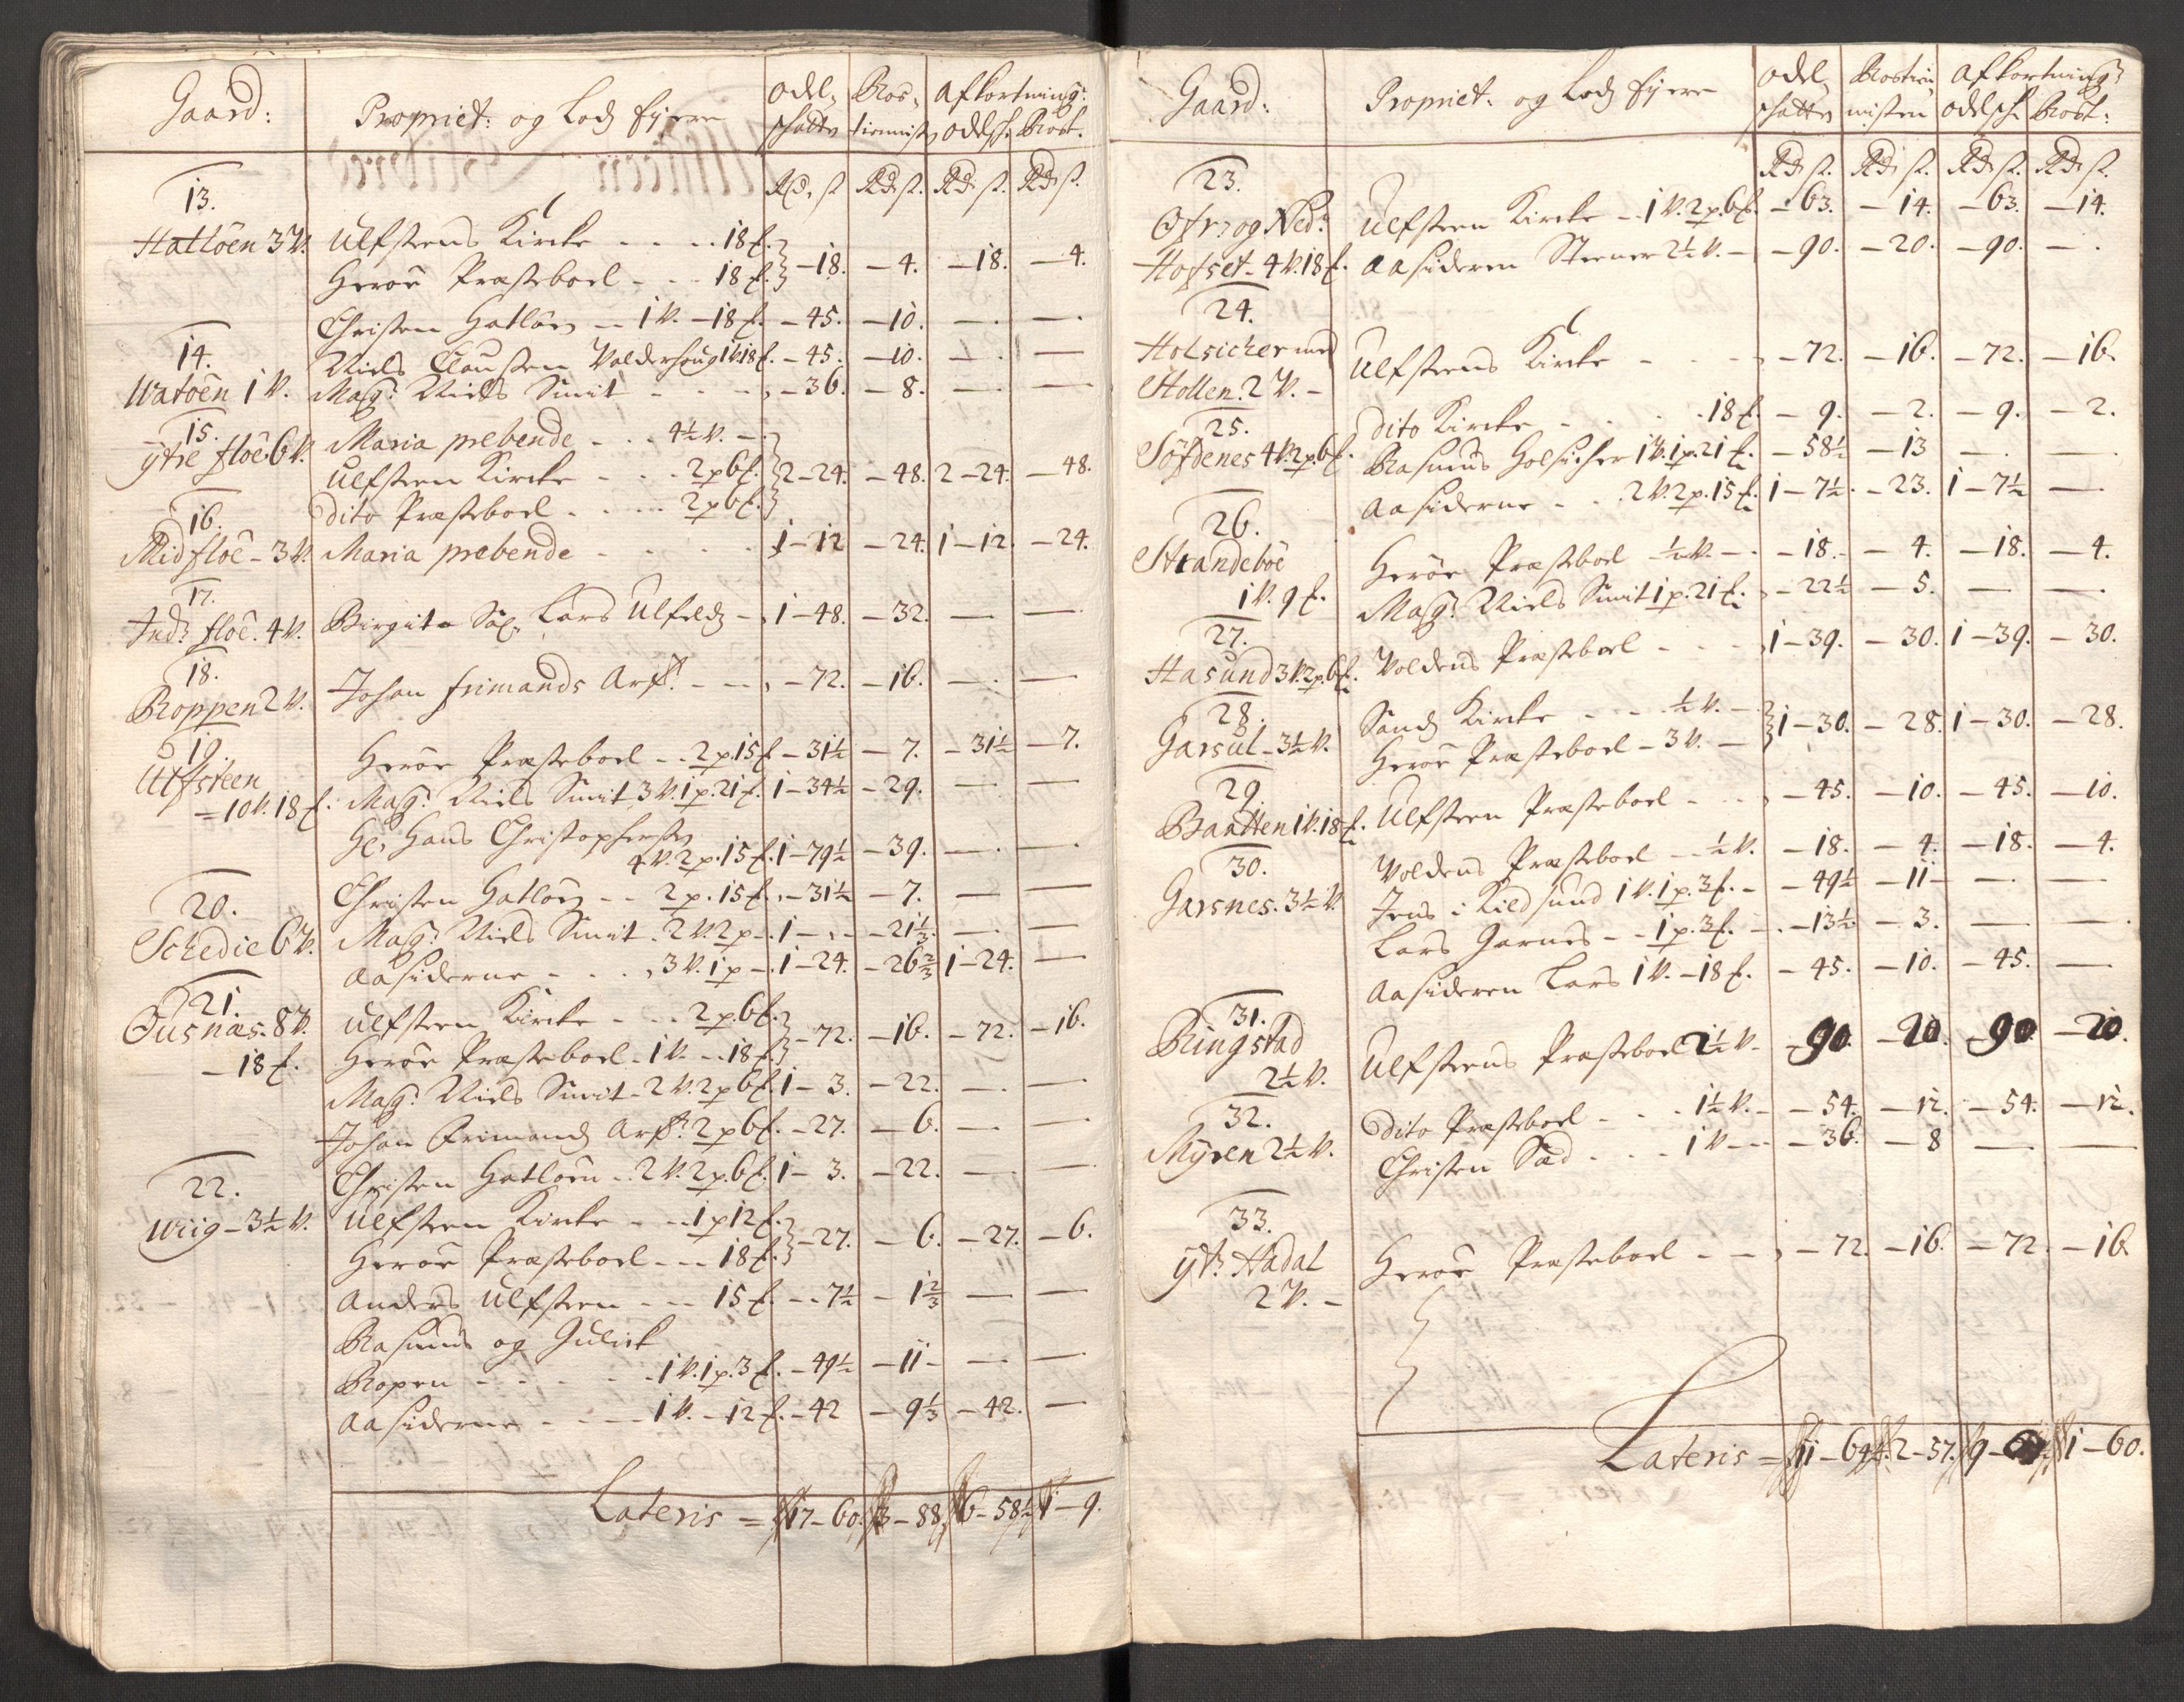 Gaard:
Propriet: og Lodz Eyere
Odel- schatten
Ros- tienniste
Afkortning:
Odelsch. Rost.
Rd. s. Rd. s. Rd. s. Rd. s.
13.
Hatlöen 3 V. Ulfsteens Kircke - - - 18 £.
Heröe Præsteboel - - - 18 £. } - 18. - 4. - 18. - 4.
Christen Hatlöen - - 1 V. - 18 £. - 45. - 10. - -
14.
Niels Clausen Valderhoug 1 V. 18 £. - 45. - 10. - -
Watöen 1 V. Mag: Niels Smit - - - - 36. - 8. - -
15.
ÿtre floê. 6 V. Maria prebende - - - 4½ V. -
Ulfsteen Kircke - - - 2 p 6 £. } 2 - 24. - 48. 2 - 24. - 48.
dito Præsteboel - - - - 2 p 6 £.
16.
Midfloê - 3 V. Maria prebende - - - - 1 - 12 - 24. 1 - 12. - 24.
17.
Indr floê. 4 V. Birgita Sal. Lars Ulfeldz - 1 - 48. - 32. - -
18.
Roppen 2 V. Johan frimands Arf: - - - 72. - 16. - -
19.
Ulfsteen
= 10 V. 18 £.
Heröe Præsteboel - - 2 p. 15 £ - 31½ - 7. - 31½ - 7.
Mag: Niels Smit 3 V. 1 p. 21 £. 1 - 34½ - 29. - -
Hr. Hans Christophersen
4 V. 2 p. 15 £. 1 - 79½ - 39. - -
Christen Hatlöen - - 2 p. 15 £. - 31½ - 7. - -
20.
Schedie 6 V. Mag: Niels Smit. 2 V. 2 p - 1 - - - 21⅓. - -
Aasiderne - - - 3 V. 1 p - 1 - 24. - 26⅔ 1 - 24. -
21.
Ousnæs. 8 V.
- 18 £.
Ulfsteen Kircke - - - 2 p. 6 £.
Heröe Præsteboel - 1 V. - - 18 £. } - 72. - 16. - 72. - 16.
Mag: Niels Smit - 2 V. 2 p 6 £. 1 - 3. - 22. - -
Johan Frimands Arf: 2 p 6 £. - 27. - 6. - -
Christen Hatlöen - 2 V. 2 p. 6 £. 1 - 3. - 22. - -
22.
Wiig - 3½ V. Ulfsteen Kircke - - - 1 p 12 £.
Heröe Præsteboel - - - 18 £. } - 27. - 6. - 27. - 6.
Anders Ulfsteen - - - 15 £. - - 7½ - 1⅔ - -
Rasmus og Gulick
Ropen - - - - - 1 V. 1 p. 3 £. - 49½ - 11 - - -
Aasiderne - - - - 1 V. - 12 £. - 42 - 9⅓ - 42. -
Lateris = 17 - 60. 3 - 88. 6 - 58½ 1 - 9.
Gaard:
Propriet: og Lodz Eyere
Odel- schatten
Rostien- nisten
Afkortning:
Odelsch Rost:
Rd. s. Rd. s. Rd. s. Rd. s.
23.
Ofr: og Ned: Ulfsteen Kircke - 1 V. 2 p. 6 £. - 63. - 14. - 63. - 14.
Hofset - 4 V. 18 £. Aasideren Steener 2½ V. - - 90. - 20. - 90. - .
24.
Holsicher med
Hollen. 2 V. - Ulfsteens Kircke - - - - 72. - 16. - 72. - 16.
25.
dito Kircke - - - 18 £. - 9. - 2. - 9. - 2.
Söfdenes 4 V. 2 p. 6 £. Rasmus Holsicher 1 V. 1 p. 21 £. - 58½ - 13 - -
Aasiderne - - 2 V. 2 p. 15 £. 1 - 7½ - 23. 1 - 7½ -
26.
Strandeböe
1 V. 9 £.
Heröe Præsteboel ½ V. - - - 18. - 4. - 18. - 4.
Mag: Niels Smit 1 p. 21 £. - 22½ - 5. - -
27.
Hasund 3 V. 2 p. 6 £. Voldens Præsteboel - - - 1 - 39. - 30. 1 - 39. - 30.
28.
Garsul - 3½ V. Sandz Kircke - - - ½ V. -
Heröe Præsteboel - 3 V. - } 1 - 30. - 28. 1 - 30. - 28.
29.
Baatten 1 V. 18 £. Ulfsteen Præsteboel - - - - 45. - 10. - 45. - 10.
30.
Voldens Præsteboel - - ½ V. - 18. - 4. - 18. - 4.
Garsnes. 3½ V. Jens i Kieldsund 1 V. 1 p. 3 £. - - 49½ - 11 - - -
Lars Garnes - - 1 p. 3 £. - - 13½ - 3. - -
Aasideren Lars 1 V. - 18 £. - 45. - 10. - 45. -
31.
Ringstad
2½ V.
Ulfsteens Præsteboel 2½ V - - 90 - 20. - 90 - 20.
32.
dito Præsteboel - - - 1½ V. - - 54. - 12. - 54. - 12.
Myren 2½ V. Christen Sæd - - - 1 V - - - 36. - 8 - -
33.
ÿtr Hadal
2 V. -
Heröe Præsteboel - - - - 72. - 16. - 72. - 16.
Lateris = 11 - 64½. 2 - 57. 9 - 1 - 60.